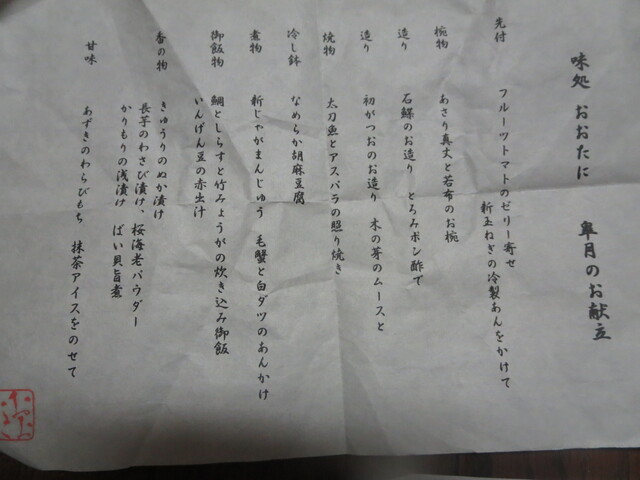 味処 おおたに 皐月のお献立
先付 フルーツトマトのゼリー寄せ
新玉ねぎの冷製あんをかけて
椀物 あさり真丈と若布のお椀
造り 石鰈のお造り とろみポン酢で
造り 初がつおのお造り 木の芽のムースと
焼物 太刀魚とアスパラの照り焼き
冷し鉢 なめらか胡麻豆腐
煮物 新じゃがまんじゅう 毛蟹と白ダツのあんかけ
御飯物 鯛としらすと竹みょうがの炊き込み御飯
いんげん豆の赤出汁
香の物 きゅうりのぬか漬け
長芋のわさび漬け、桜海老パウダー
かりもりの浅漬け ばい貝旨煮
甘味 あずきのわらびもち 抹茶アイスをのせて